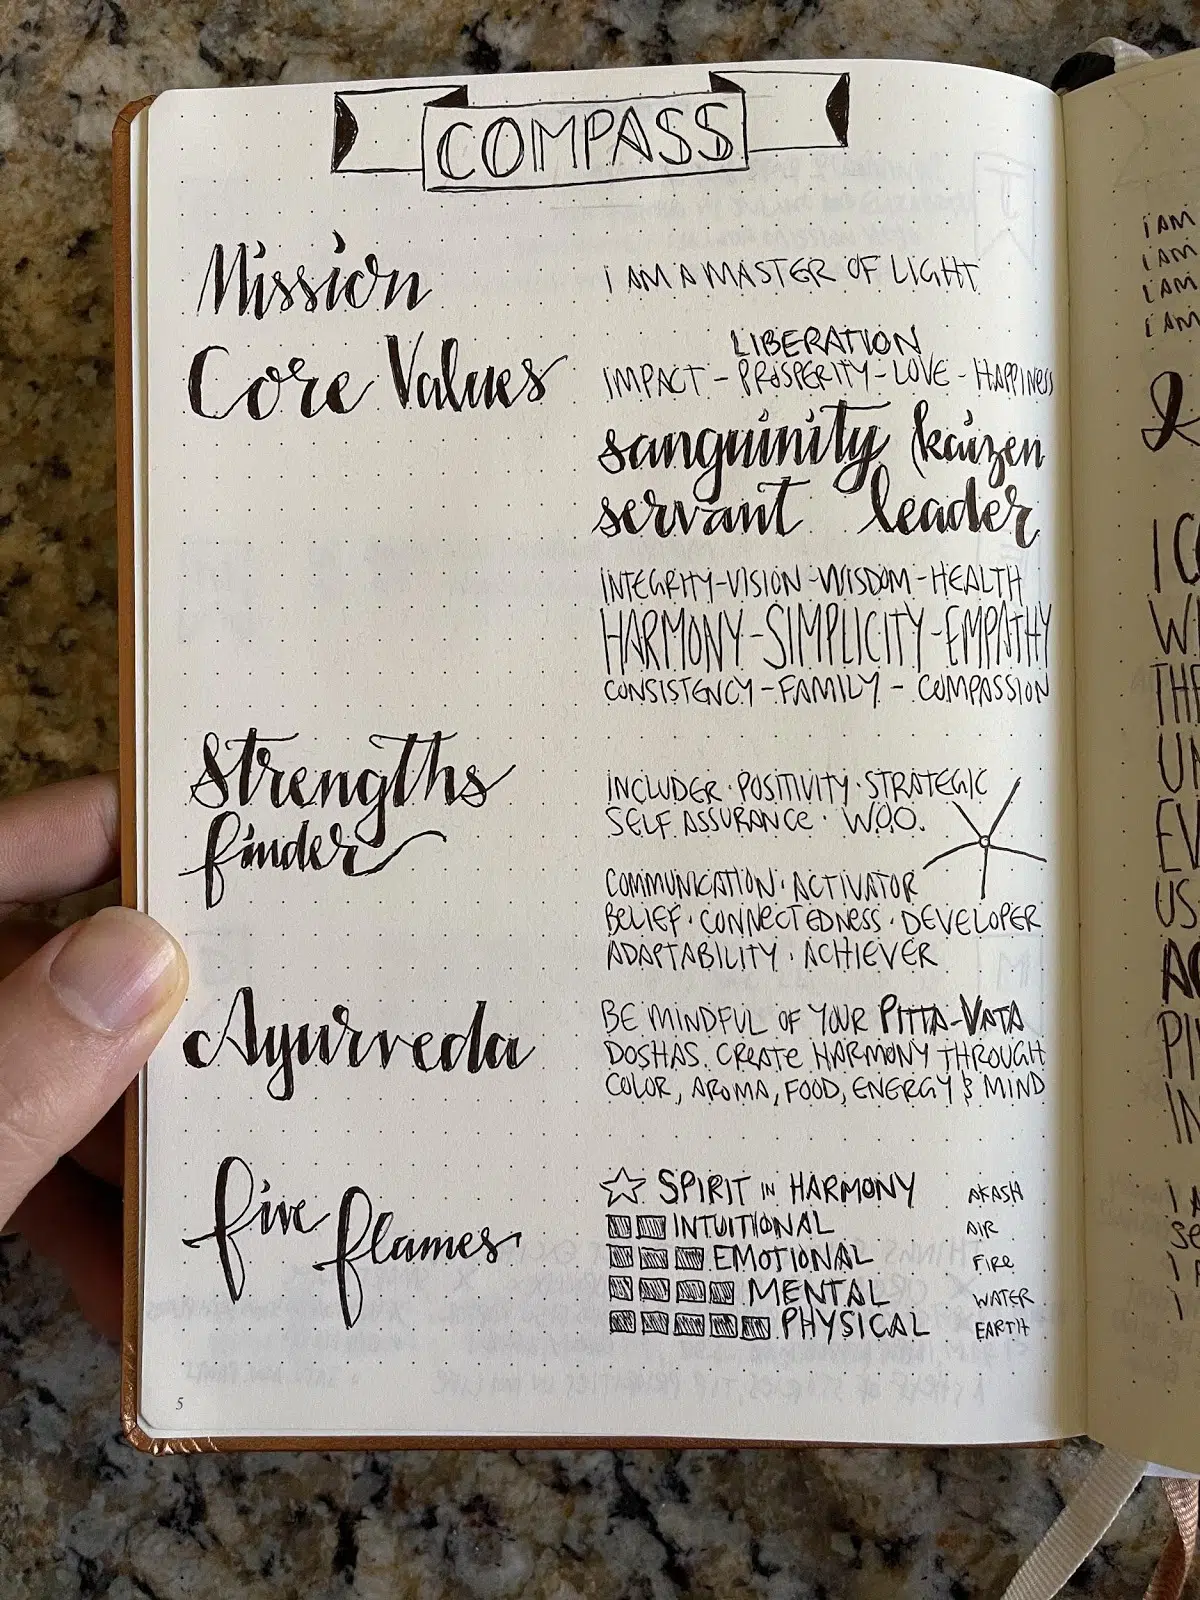 COMPASS
Mission
I AM A MASTER OF LIGHT
Core Values
LIBERATION
IMPACT - PROSPERITY - LOVE - HAPPINESS
sanguinity (kaizen
servant leader
INTEGRITY-VISION-WISDOM-HEALTH
HARMONY-SIMPLICITY-EMPATHY
CONSISTENCY-FAMILY-COMPASSION
Strengths
finder
INCLUDER · POSITIVITY · STRATEGIC
SELF ASSURANCE · W.O.O.
COMMUNICATION · ACTIVATOR
BELIEF · CONNECTEDNESS · DEVELOPER
ADAPTABILITY · ACHIEVER
Ayurveda
BE MINDFUL OF YOUR PITTA-VATA
DOSHAS. CREATE HARMONY THROUGH
COLOR, AROMA, FOOD, ENERGY & MIND
five flames
SPIRIT IN HARMONY AKASH
INTUITIONAL AIR
EMOTIONAL FIRE
MENTAL WATER
PHYSICAL EARTH
5
I AM
I AM
I AM
I AM